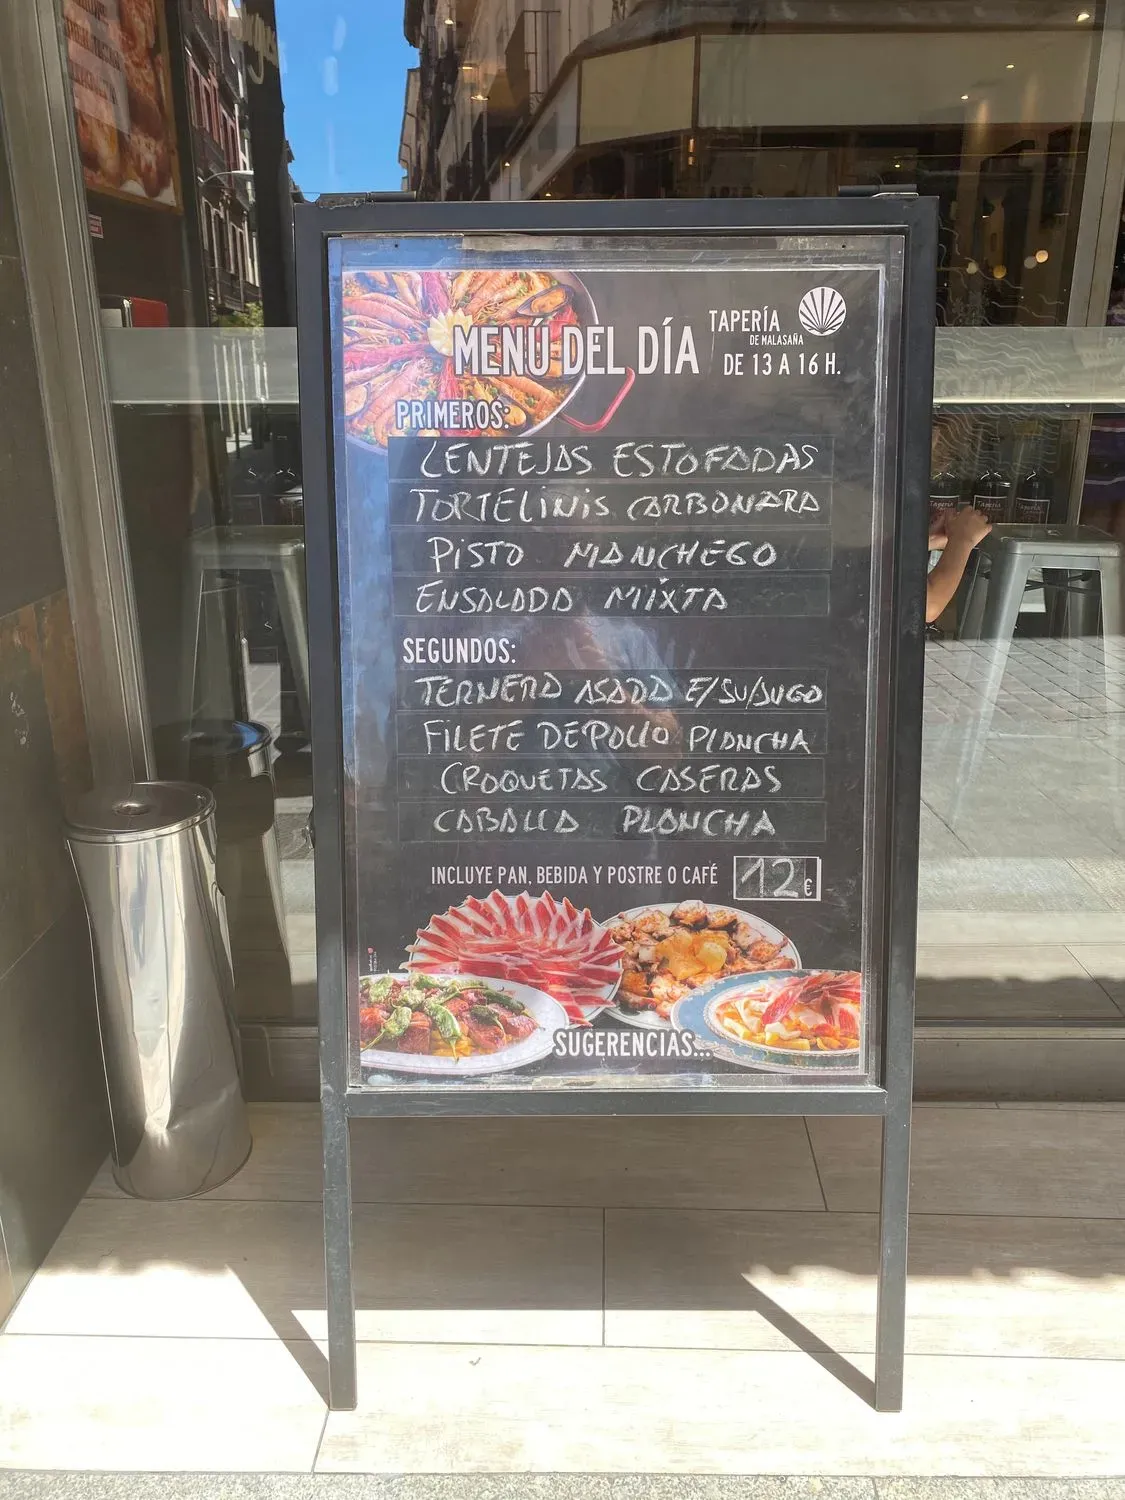 MENÚ DEL DÍA
TAPERÍA
DE MALASAÑA
DE 13 A 16 H.
PRIMEROS:
LENTEJAS ESTOFADAS
TORTELINIS CARBONARA
PISTO MANCHEGO
ENSALADA MIXTA
SEGUNDOS:
TERNERA ASADA E/SU/JUGO
FILETE DE POLLO PLANCHA
CROQUETAS CASERAS
CABALLA PLANCHA
INCLUYE PAN, BEBIDA Y POSTRE O CAFÉ 12 €
SUGERENCIAS...